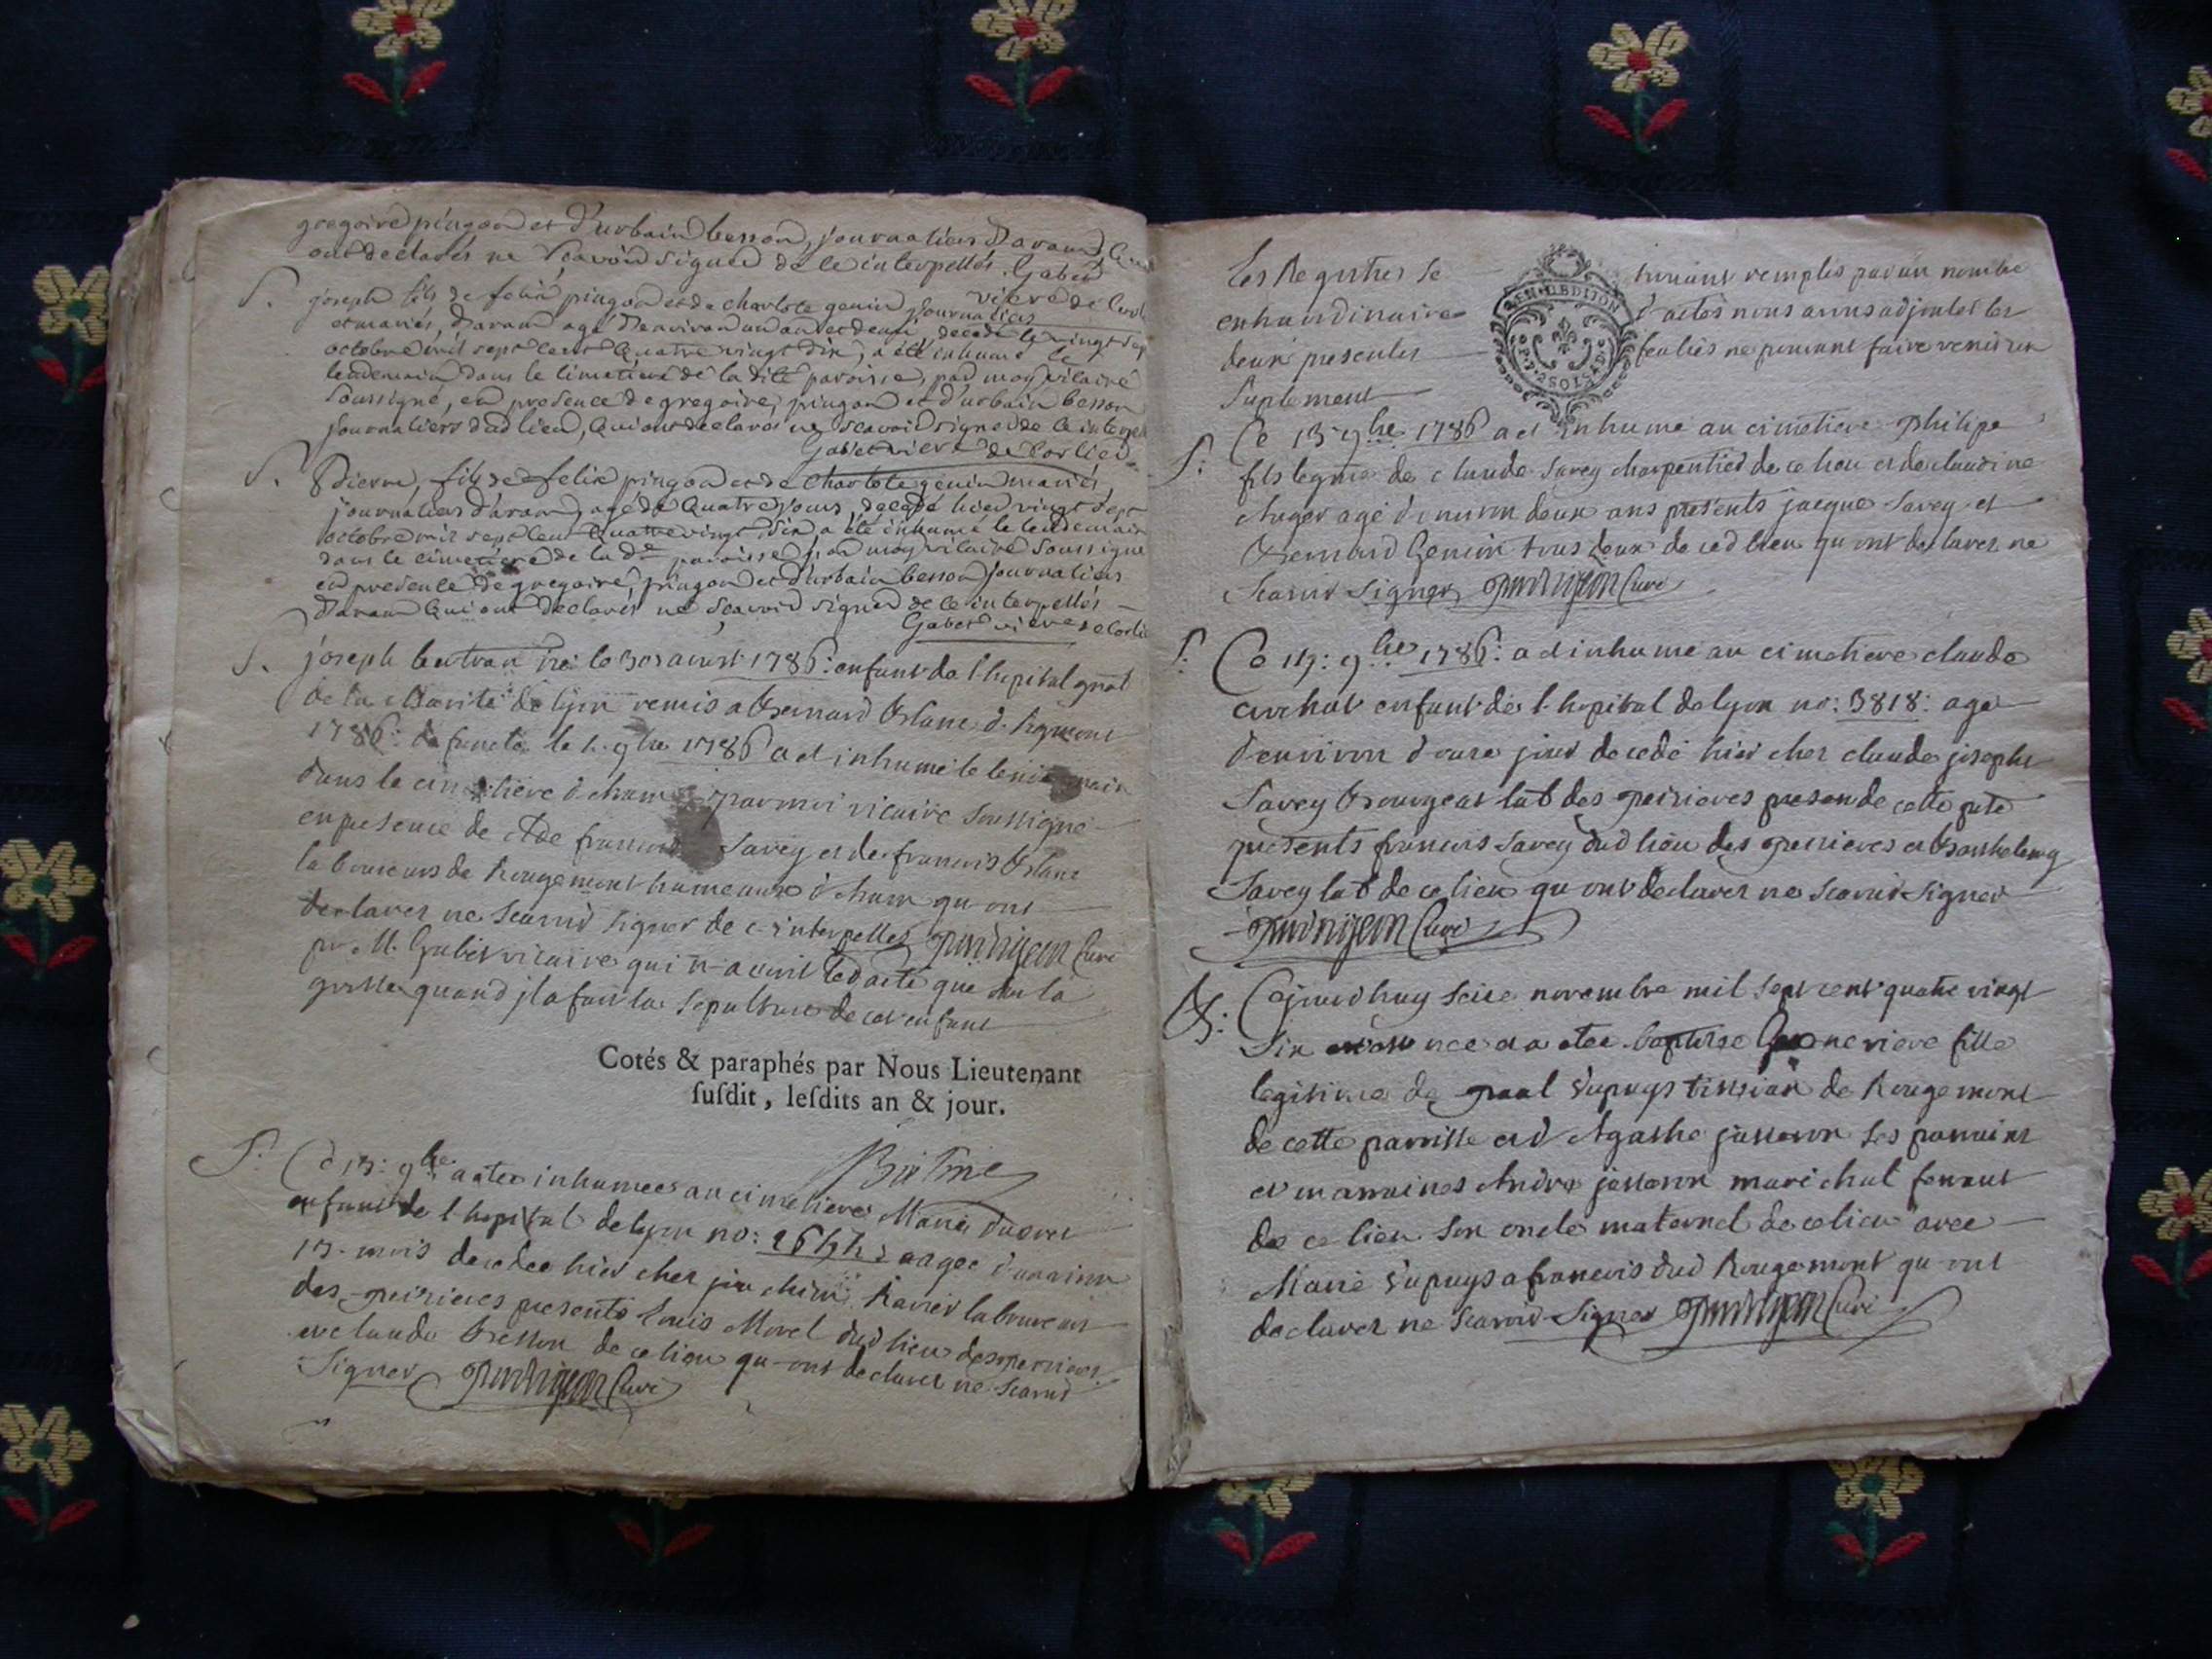 gregoire pingon et d'urbain besson, journaliers d'aran,
ont declarés ne sçavoir signer de ce interpellés. Gabet
viere de Corlier
S. joseph fils de felix pingon et de charlote genin journaliers
et mariés, d'aran agé d'environ un an et demi, decedé le vingt sept
octobre mil sept cent quatre vingt six, a été inhumé le
lendemain dans le cimetiere de la dite paroisse, par moy vicaire
soussigné, en presence de gregoire, pingon et d'urbain besson
journaliers dud lieu, qui ont declarés ne sçavoir signer de ce interpel
Gabet viere de Corlier
S. Pierre, fils de felix pingon et de charlote genin mariés,
journaliers d'aran, agé de quatre jours, decedé hier vingt sept
octobre mil sept cent quatre vingt six, a été inhumé le lendemain
dans le cimetiere de la de paroisse par moy vicaire soussigné
en presence de gregoire, pingon et d'urbain besson journaliers
d'aran qui ont declarés ne sçavoir signer de ce interpellés
Gabet viere de Corlie
S. joseph le 30 aoust 1786: enfant de l'hopital gnal
de la charité de lyon remis a Bernard Blanc d. Rogemont
1786: defuncte le 1. 9bre 1786 a et inhumé le lendemain
dans le cimetiere d'cham par moi vicaire soussigné
en presence de Cde francois Savey et de francois Blanc
laboureurs de Rougemont hameaux d'cham qu ont
declarer ne scavoir signer de c- interpelles Curé
pr M. Gabet vicaire qui n-a ecrit led acte que sur la
quand jl a fait la sepulture de cet enfant
Cotés & paraphés par Nous Lieutenant
ſuſdit, leſdits an & jour.
S: Ce 13: 9bre a etee inhumee au cimetiere Marie
enfant de l'hopital de lyon no: aagee d'environ
13. mois decedee hier cher joachim Ravier laboureur
des peirieres presents Louis Morel dud lieu des perrieres
et claude Besson de ce lieu qu-ont declarer ne scavoir
Signer Curé
Les Registres se trouvant remplis par un nombre
extraordinaire d'actes nous avons adjoutes les
deux presentes feulies ne pouvant faire venir un
Suplement
GEN. DE DIJON
S: Ce 13 9bre 1786 a et inhumé au cimetiere Philipe
fils legme de claude Savey charpentier de ce lieu et de claudine
Auger agé d'environ deux ans presents jacque Savey et
Bernard Genin tous deux de ced lieu qu ont declarer ne
Scavoir signer Curé
S: Ce 15: 9bre 1786: a et inhumé au cimetiere claude
enfant de l-hopital de lyon no: 3818: agé
d'environ douze jour decedé hier cher claude joseph
Savey Bourgeat lab des peirieres presen de cette pte
presents francois Savey dud lieu des perrieres et Barthelemy
Savey lab de ce lieu qu ont declarer ne scavoir signer
Curé
B: Cejourdhuy seize novembre mil sept cent quatre vingt
Six nee et a etee baptisee Genevieve fille
legitime de paul Dupuys tissier de Rougemont
de cette paroisse et d'Agathe josseron ses parrains
et marraines Andre josseron marechal ferrant
de ce lieu son oncle maternel de ce lieu avec
Marie Dupuys a francois dud Rougemont qu ont
declarer ne scavoir signer Curé